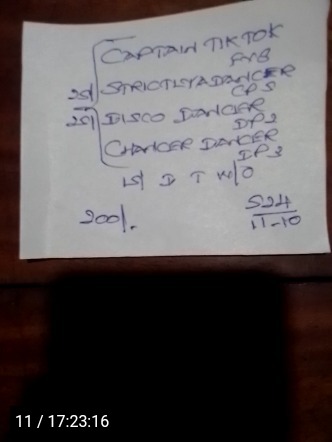 CAPTAIN TIKTOK
STRICTLYADANCER
CP5
25/
25/ DISCO DANCER
DP2
CHANCER DANCER
DP3
1st D T W/O
200/.
S24
11-10
11 / 17:23:16